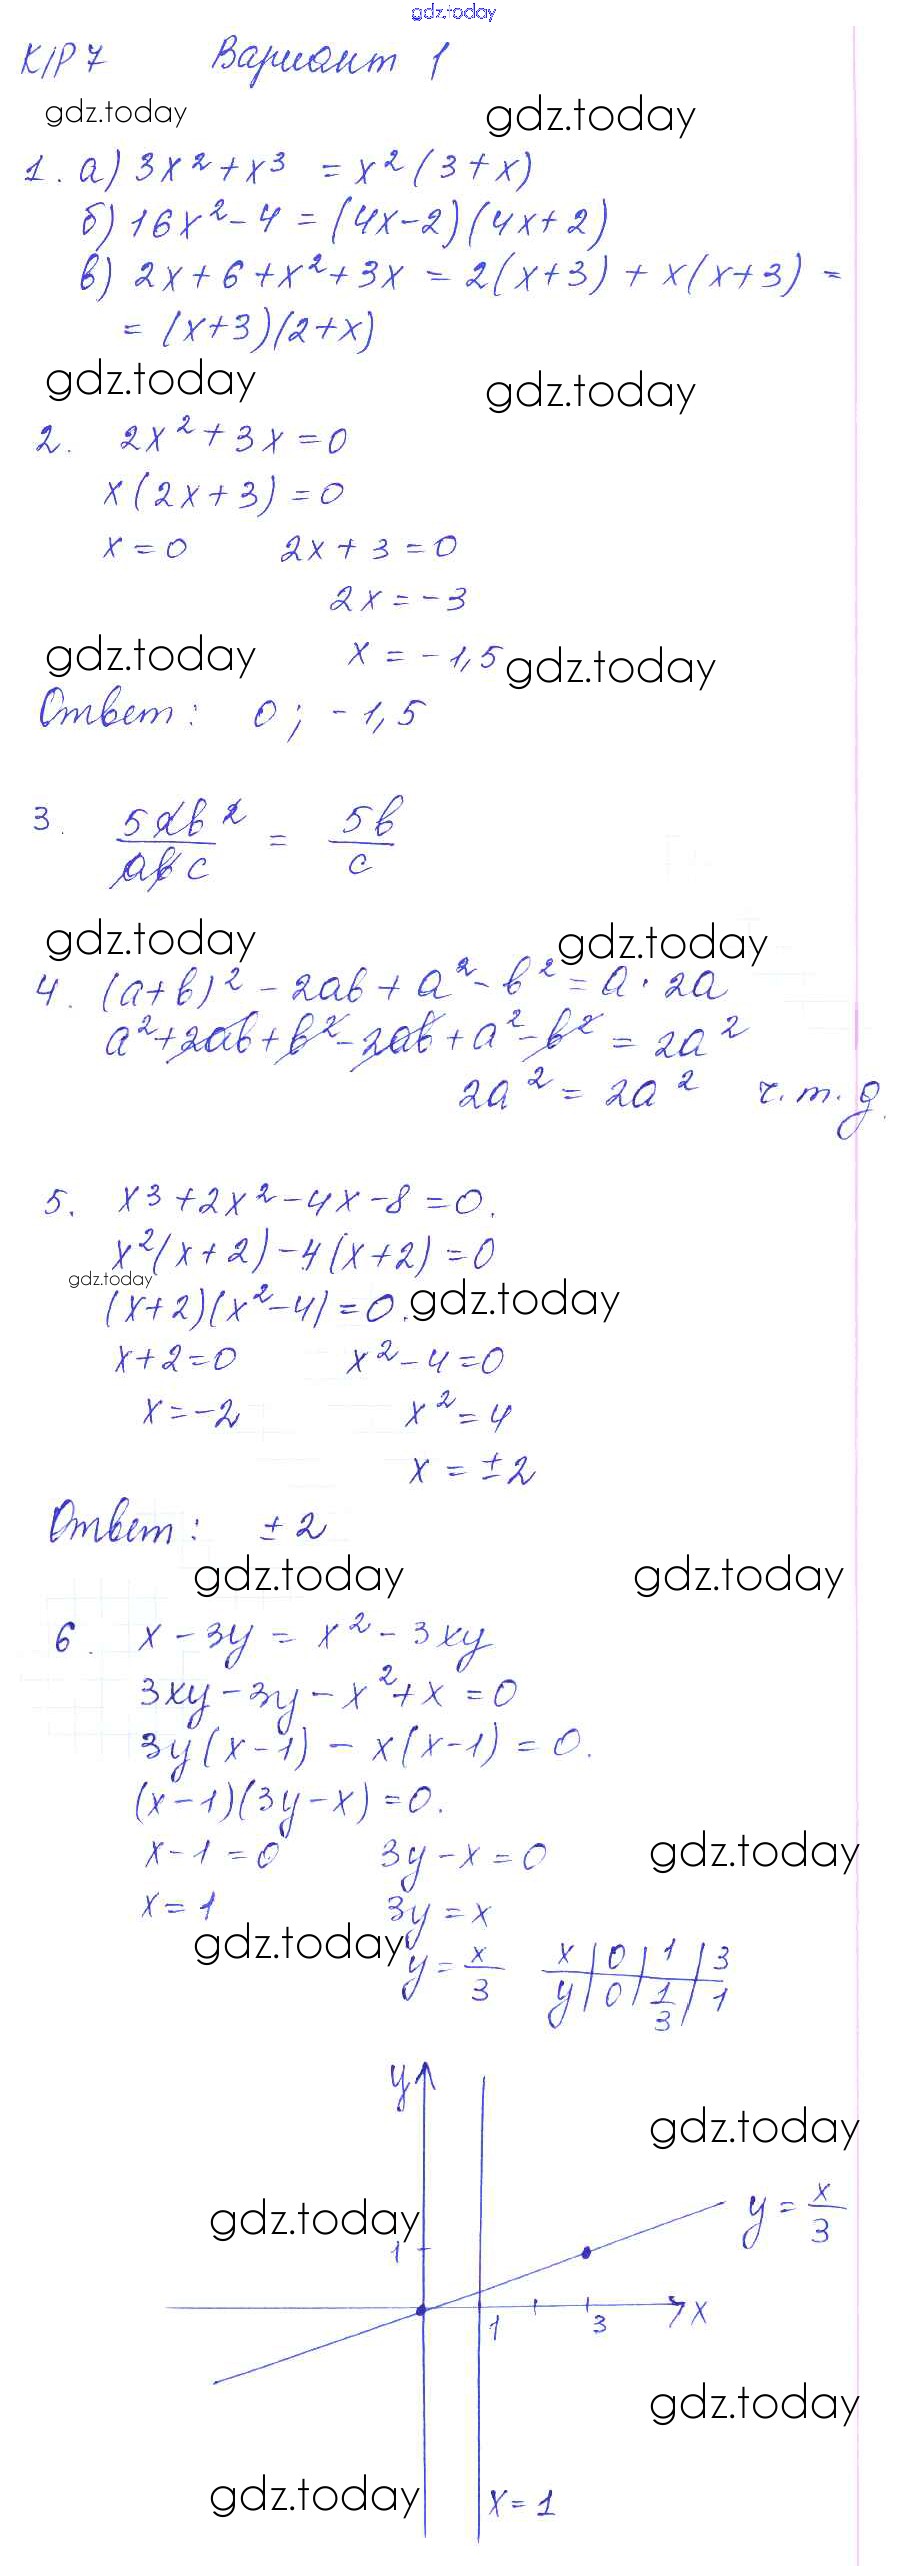 gdz.today
К/Р 7 Вариант 1
gdz.today gdz.today
1. а) 3x² + x³ = x² (3 + x)
б) 16x² - 4 = (4x - 2)(4x + 2)
в) 2x + 6 + x² + 3x = 2(x+3) + x(x+3) =
= (x+3)(2+x)
gdz.today gdz.today
2. 2x² + 3x = 0
x(2x+3) = 0
x = 0 2x + 3 = 0
2x = -3
gdz.today x = -1,5 gdz.today
Ответ: 0; -1,5
3. 5ab²/abc = 5b/c
gdz.today gdz.today
4. (a+b)² - 2ab + a² - b² = a · 2a
a² + 2ab + b² - 2ab + a² - b² = 2a²
2a² = 2a² ч.т.д.
5. x³ + 2x² - 4x - 8 = 0.
x²(x+2) - 4(x+2) = 0
gdz.today
(x+2)(x² - 4) = 0. gdz.today
x+2=0 x² - 4 = 0
x = -2 x² = 4
x = ±2
Ответ: ±2
gdz.today gdz.today
6. x - 3y = x² - 3xy
3xy - 3y - x² + x = 0
3y(x-1) - x(x-1) = 0.
(x-1)(3y-x) = 0.
x - 1 = 0 3y - x = 0 gdz.today
x = 1 3y = x
gdz.today y = x/3 x | 0 | 1 | 3
y | 0 | 1/3 | 1
y
gdz.today
gdz.today y = x/3
1
1 3 x
gdz.today
gdz.today x = 1